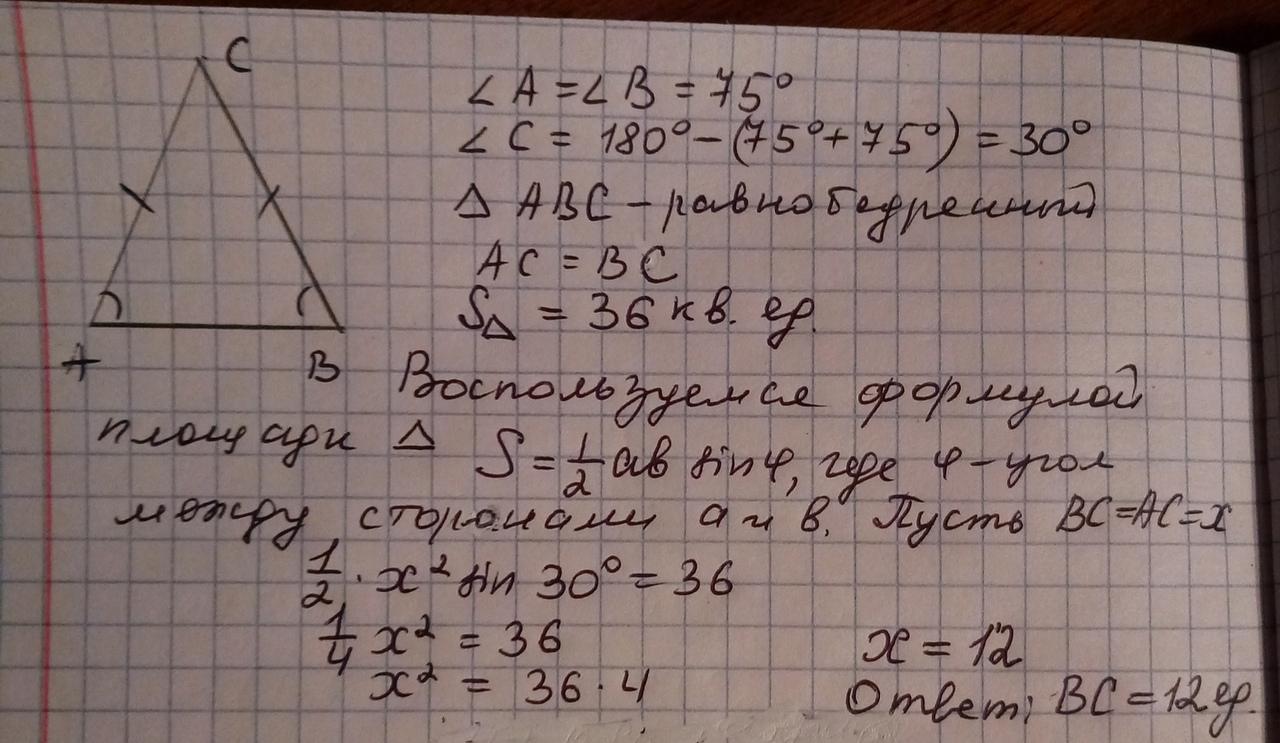 C
∠A = ∠B = 75°
∠C = 180° - (75° + 75°) = 30°
△ ABC - равнобедренный
AC = BC
S△ = 36 кв. ед.
A
B
Воспользуемся формулой
площади △ S = 1/2 ab sin φ, где φ - угол
между сторонами a и b. Пусть BC = AC = x
1/2 · x² sin 30° = 36
1/4 x² = 36
x² = 36 · 4
x = 12
Ответ: BC = 12 ед.